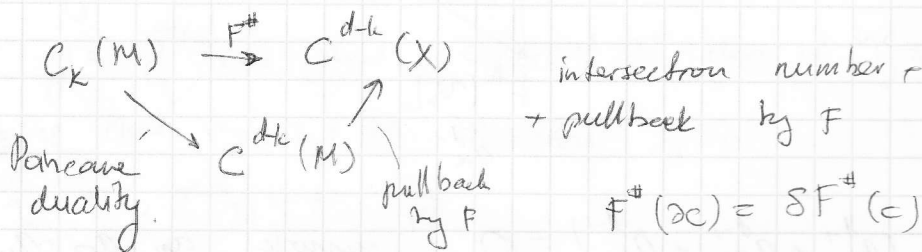 C_k(M) F^# → C^{d-k}(X)
intersection number -
+ pullback by F
C^{d-k}(M)
Poincare
duality.
pullback
by F
F^#(∂c) = δF^#(c)